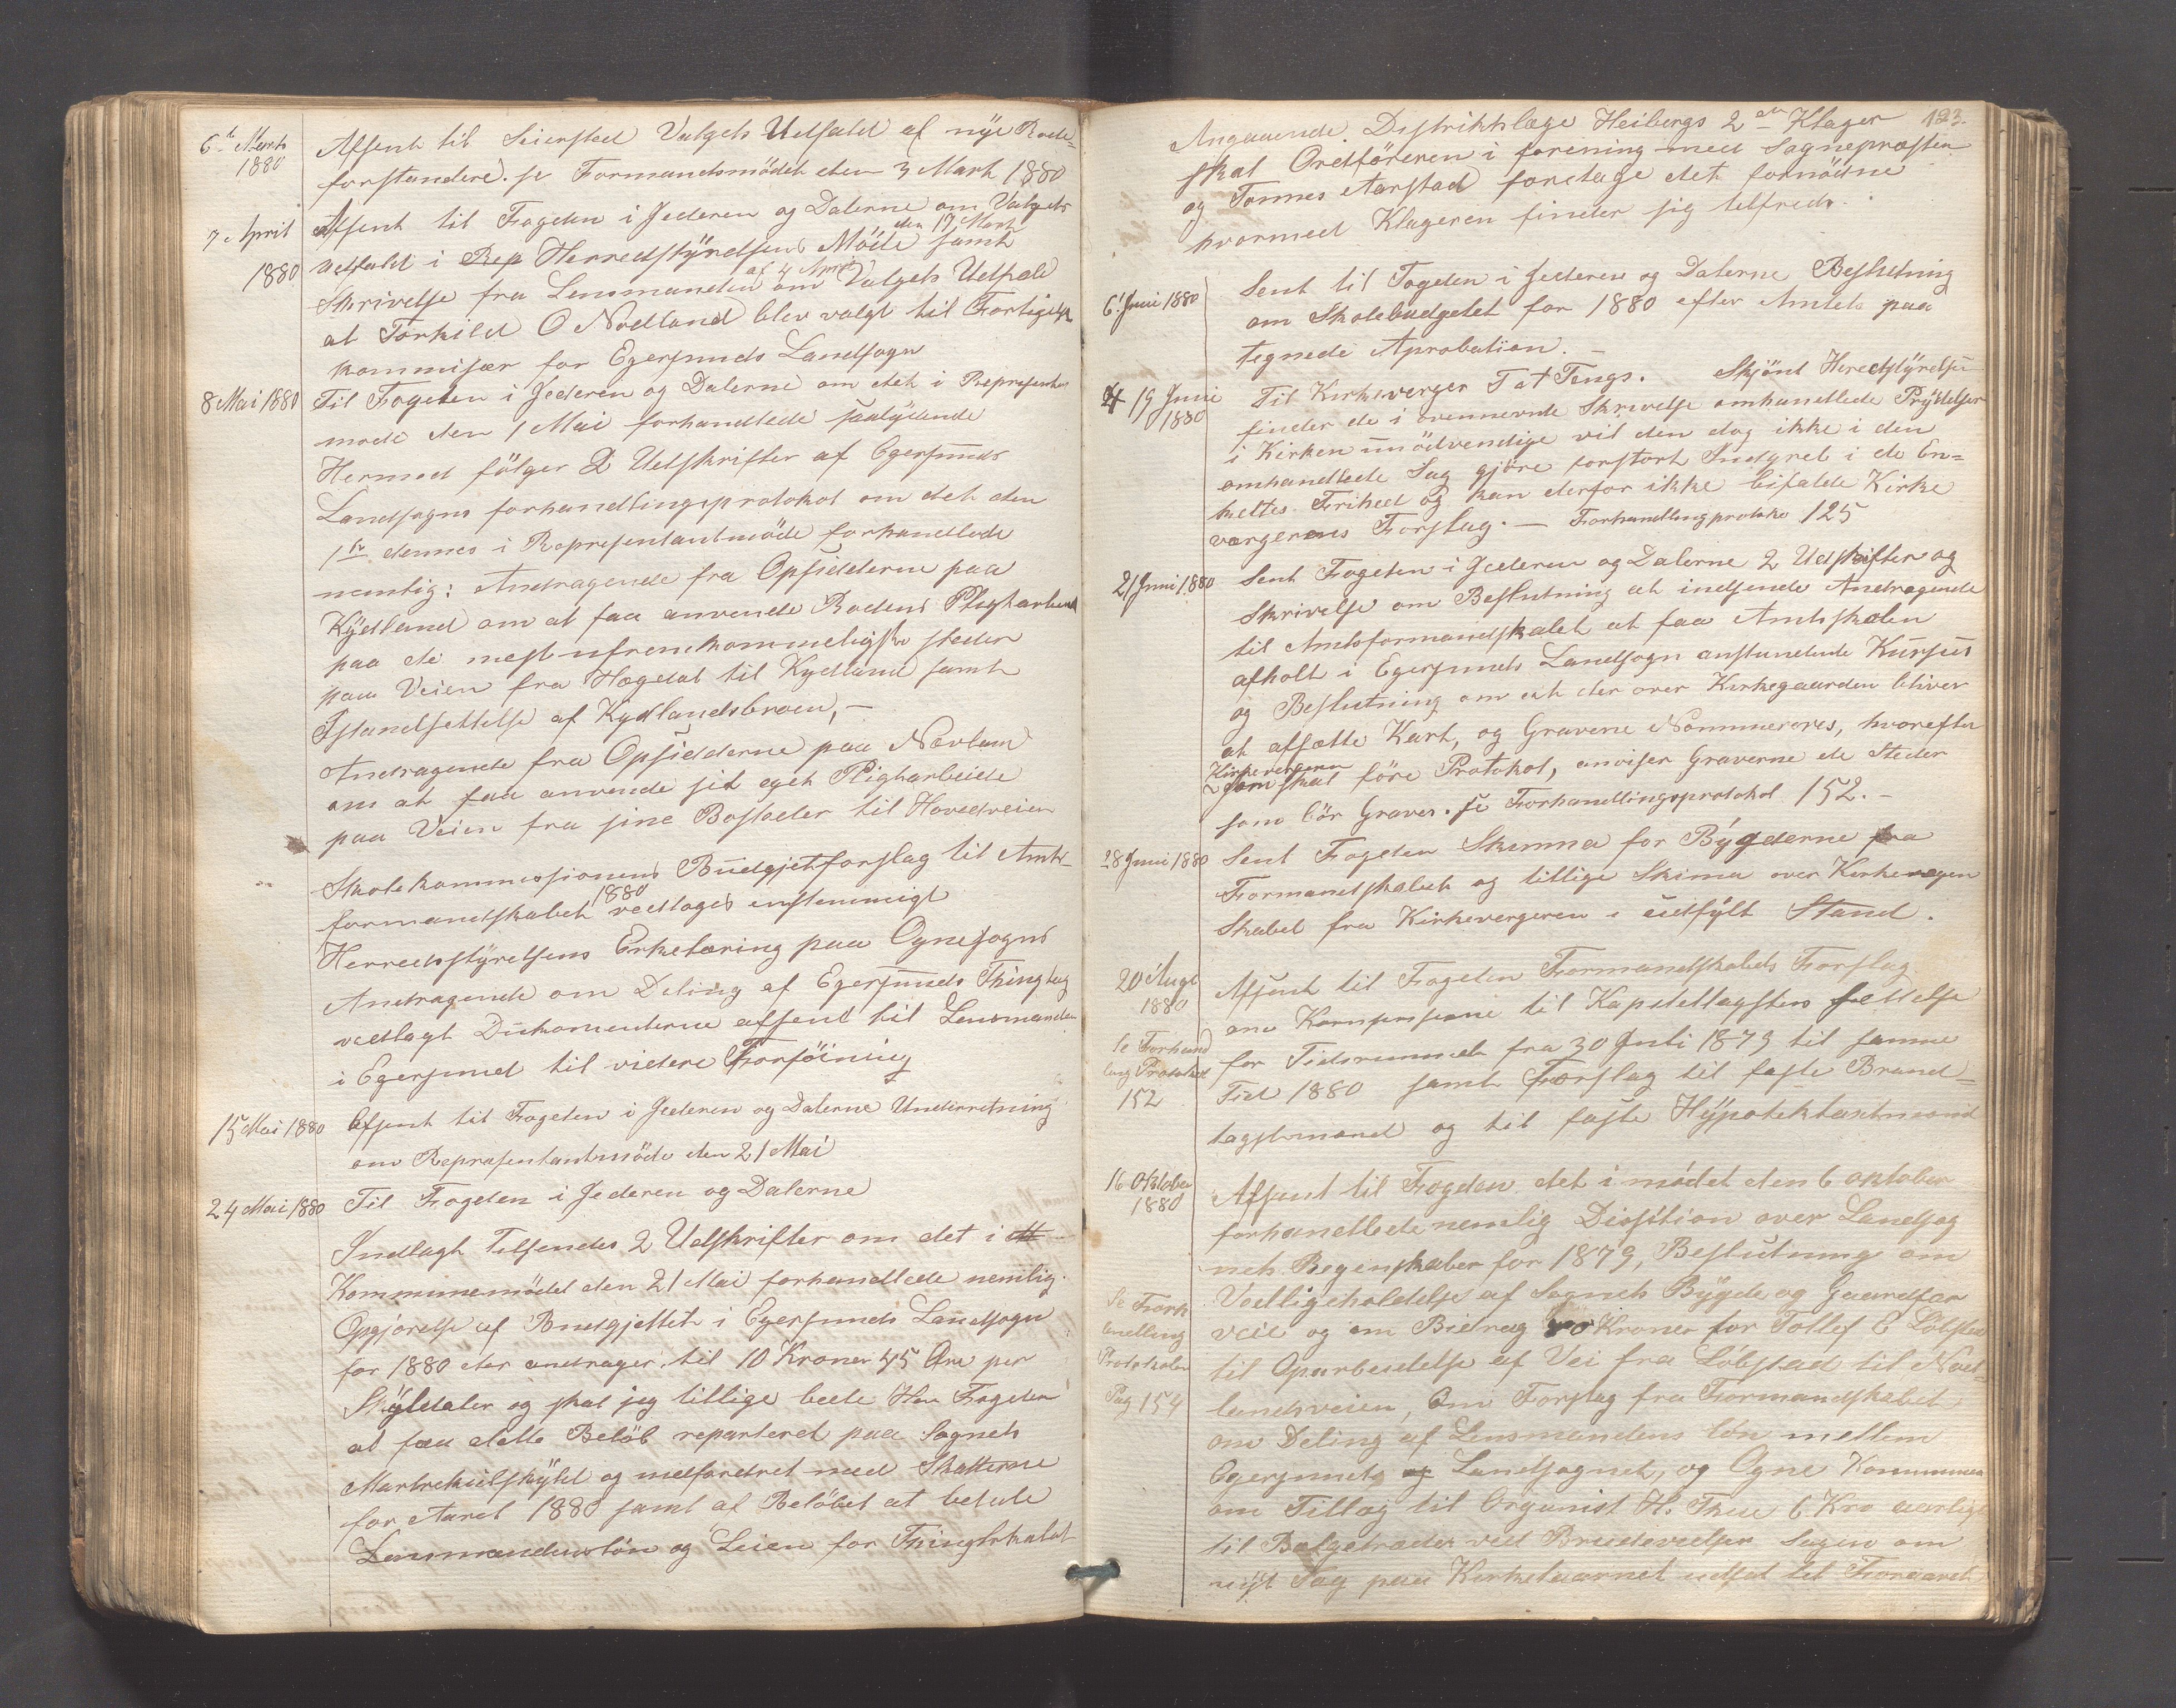 6te Marts
1880
Afsent til Seierstad Valgets Udfald af nye Rode-
forstandere. se Formandsmödet den 3 Mart 1880
7 April
1880
Afsent til Fogden i Jederen og Dalerne om Valgets
den 17 Mart
Udfald i Rep Herredstyrelsens Möde samt
af 4 April
Skrivelse fra Lensmanden om Valgets Udfald
at Torkild O Nodland blev valgt til Forligelse
kommisær for Egersunds Landsogn
8 Mai 1880
Til Fogden i Jederen og Dalerne om det i Represent
mode den 1 Mai forhandlede saalydende
Hermed fölger 2 Udskrifter af Egersunds
Landsogns forhandlingsprotokol om det den
1ste dennes i Representantmöde forhandlede
nemlig: Andragende fra Opsidderne paa
Kydland om at faa anvende Rodens Pligtarbeid
paa de mest ufremkommeligste steder
paa Veien fra Hægdal til Kydland samt
Istandsettelse af Kydlandsbroen, –
Andragende fra Opsidderne paa Nevland
om at faa anvende sit eget Pligtarbeide
paa Veien fra sine Bosteder til Hovedveien
Skolekommissionens Budgjetforslag til Amts-
1880
formandskabet vedtoges enstemmigt
Herredsstyrelsens Erkelæring paa Ognesogns
Andragende om Deling af Egersunds Thinglag
vedlagt Dukomenterne afsent til Lensmanden
i Egersund til videre Forföining
15 Mai 1880
Afsent til Fogden i Jederen og Dalerne Underretning
om Representantmöde den 21 Mai
24 Mai 1880
Til Fogden i Jederen og Dalerne
Indlagt Tilsendes 2 Udskrifter om det i
Kommunemödet den 21 Mai forhandlede nemlig
Opgjørelse af Budgjettet i Egersunds Landsogn
for 1880 der andrager til 10 Kroner 45 Öre per
Skyldaler og skal jeg tillige bede Hr Fogden
at faa dette Belöb reparteret paa Sognets
Martrekulskyld og indfordret med Skatterne
for Aaret 1880 samt af Belöbet at betale
Lensmandenslön og Leien for Thinglokalet
123.
Angaaende Distriktslæge Heibergs 2 Klager
skal Ordföreren i forening med Sognepræsten
og Tonnes Aarstad foretage det fornödne
hvormed Klageren finder sig tilfreds.
6' Juni 1880
Sent til Fogden i Jederen og Dalerne Beslutning
om Skolebudgetet for 1880 efter Amtets paa
tegnede Aprobation. –
19 Juni
1880
Til Kirkeverger T at Tengs. Skjönt Heredstyrelsen
finder de i ovennevnte Skrivelse omhandlede Prydelser
i Kirken unödvendige vil den dog ikke i den
omhandlede Sag gjöre forstort Indgreb i de En=
keltes Frihed og kan derfor ikke bifalde Kirke
vorgerens Forslag. – Forhandlingprotoko 125
21 Juni 1880
Sent Fogden i Jederen og Dalerne 2 Udskrifter og
Skrivelse om Beslutning at indsende Andragende
til Amtsformandskabet at faa Amtskolen
afholt i Egersunds Landsogn anstundende Kursus
og Beslutning om at der over Kirkegaarden bliver
at affatte Kart, og Gravene Nommereres, hvorefter
Kirkevergeren
som skal före Protokol, anviser Graverne de Steder
som bör Graves. se Forhandlingsprotokol 152. –
28 Juni 1880
Sent Fogden Skemma for Bygderne fra
Formandskabet og tillige Skima over Kirkeregen
Skabet fra Kirkevergeren i udfylt Stand.
20 Augt
1880
Se Forhand
ling Protokol
152
Afsent til Fogden Formandskabets Forslag
om til Kapiteltagstens settelse
for Tidsrummet fra 30 Juli 1879 til samme
Tid 1880 samt Forslag til faste Brand-
tagstmænd og til faste Hypotektaxtmænd
16 Oktober
1880
Se Forh
andling
Protokolen
Pag 154
Afsent til Fogden det i mödet den 6 oktober
forhandlede nemlig Disistion over Landsog
nets Regenskaber for 1879, Beslutning om
Vedligeholdelse af Sognets Bygde og Gaardfar
veie og om Bidrag Kroner for Tollef E Löbsted
til Oparbeidelse af Vei fra Löbstad til Nod-
landsveien, Om Forslag fra Formandskabet
om Deling af Lensmandens lön mellem
Egersunds og Landsognet, og Ogne Kommune
om Tillag til Organist H. Thu 6 Kro aarligt
til Bælgetræder ved Brudevielser Sagen om
nyt Tag paa Kirketaarnet udsat til Foraaret